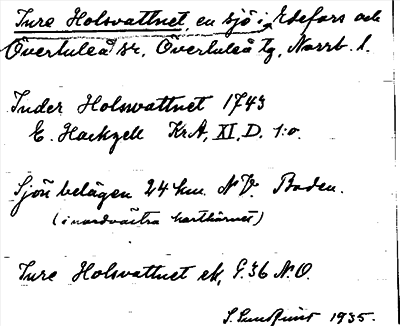 Inre Holsvattnet, en sjö i Edefors och
Överluleå sr, Överluleå tg, Norrb. l.
Inder Holswattnet 1743
E. Hackzell KrA, XI, D. 1:o.
Sjön belägen 24 km. N.V. Boden.
(i nordvästra karthörnet)
Inre Holsvattnet ek, G.36 N.O.
S. Sundqvist 1935.